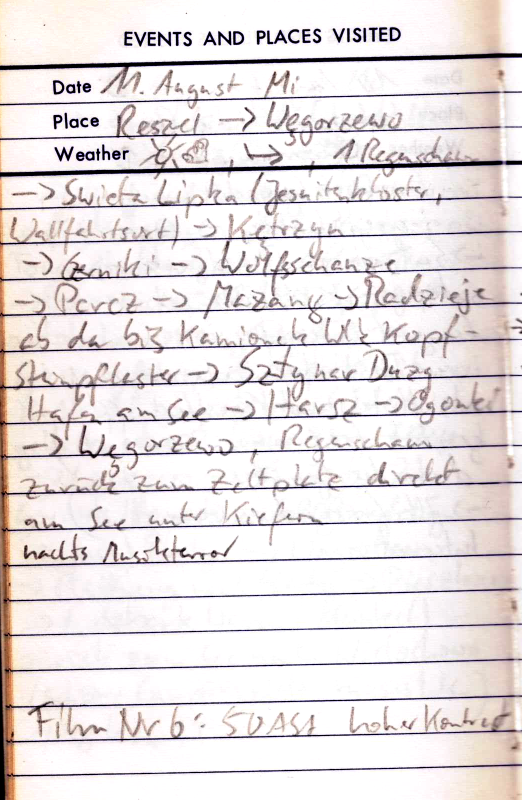 EVENTS AND PLACES VISITED
Date 11. August Mi
Place Reszel → Węgorzewo
Weather , 1 Regenschauer
→ Swieta Lipka (Jesuitenkloster,
Wallfahrtsort) → Kętrzyn
→ Czerniki → Wolfsschanze
→ Parcz → Mazany → Radzieje
ab da bis Kamionek Wlk Kopf-
steinpflaster → Sztynar Duzy
Hafen am See → Harsz → Ogonki
→ Węgorzewo, Regenschauer
zurück zum Zeltplatz direkt
am See unter Kiefern
nachts Musikterror
Film Nr 6: 50 ASA hoher Kontrast